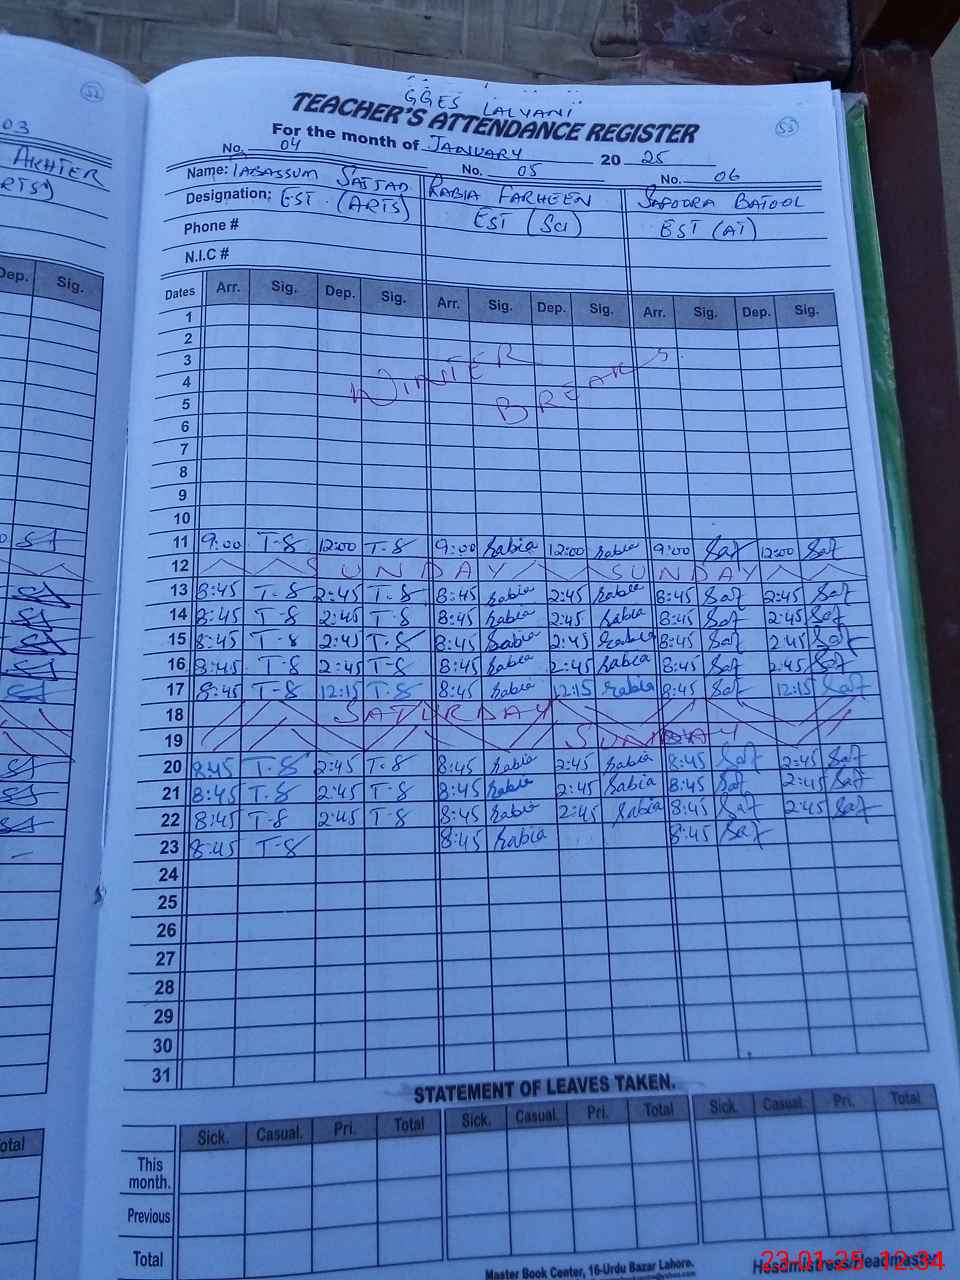 52
03
AKHTER
RTS)
Dep. Sig.
otal
53
GGES LALYANI
TEACHER'S ATTENDANCE REGISTER
For the month of JANUARY 20 25
No. 04 No. 05 No. 06
Name: TABASSUM SAJJAD RABIA FARHEEN SAFOORA BATOOL
Designation: EST (ARTS) EST (Sci) EST (AT)
Phone #
N.I.C #
Dates Arr. Sig. Dep. Sig. Arr. Sig. Dep. Sig. Arr. Sig. Dep. Sig.
1
2
3 WINTER
4
5 BREAK
6
7
8
9
10
11 9:00 T-S 12:00 T-S 9:00 Rabia 12:00 Rabia 9:00 Saf 12:00 Saf
12 SUNDAY SUNDAY
13 8:45 T-S 2:45 T-S 8:45 Rabia 2:45 Rabia 8:45 Saf 2:45 Saf
14 8:45 T-S 2:45 T-S 8:45 Rabia 2:45 Rabia 8:45 Saf 2:45 Saf
15 8:45 T-S 2:45 T-S 8:45 Rabia 2:45 Rabia 8:45 Saf 2:45 Saf
16 8:45 T-S 2:45 T-S 8:45 Rabia 2:45 Rabia 8:45 Saf 2:45 Saf
17 8:45 T-S 12:15 T-S 8:45 Rabia 12:15 Rabia 8:45 Saf 12:15 Saf
18 SATURDAY
19 SUNDAY
20 8:45 T-S 2:45 T-S 8:45 Rabia 2:45 Rabia 8:45 Saf 2:45 Saf
21 8:45 T-S 2:45 T-S 8:45 Rabia 2:45 Rabia 8:45 Saf 2:45 Saf
22 8:45 T-S 2:45 T-S 8:45 Rabia 2:45 Rabia 8:45 Saf 2:45 Saf
23 8:45 T-S 8:45 Rabia 8:45 Saf
24
25
26
27
28
29
30
31
STATEMENT OF LEAVES TAKEN.
Sick. Casual. Pri. Total Sick. Casual. Pri. Total Sick. Casual. Pri. Total
This month.
Previous
Total
Master Book Center, 16-Urdu Bazar Lahore.
Headmistress/Headmaster
23-01-25 12:34